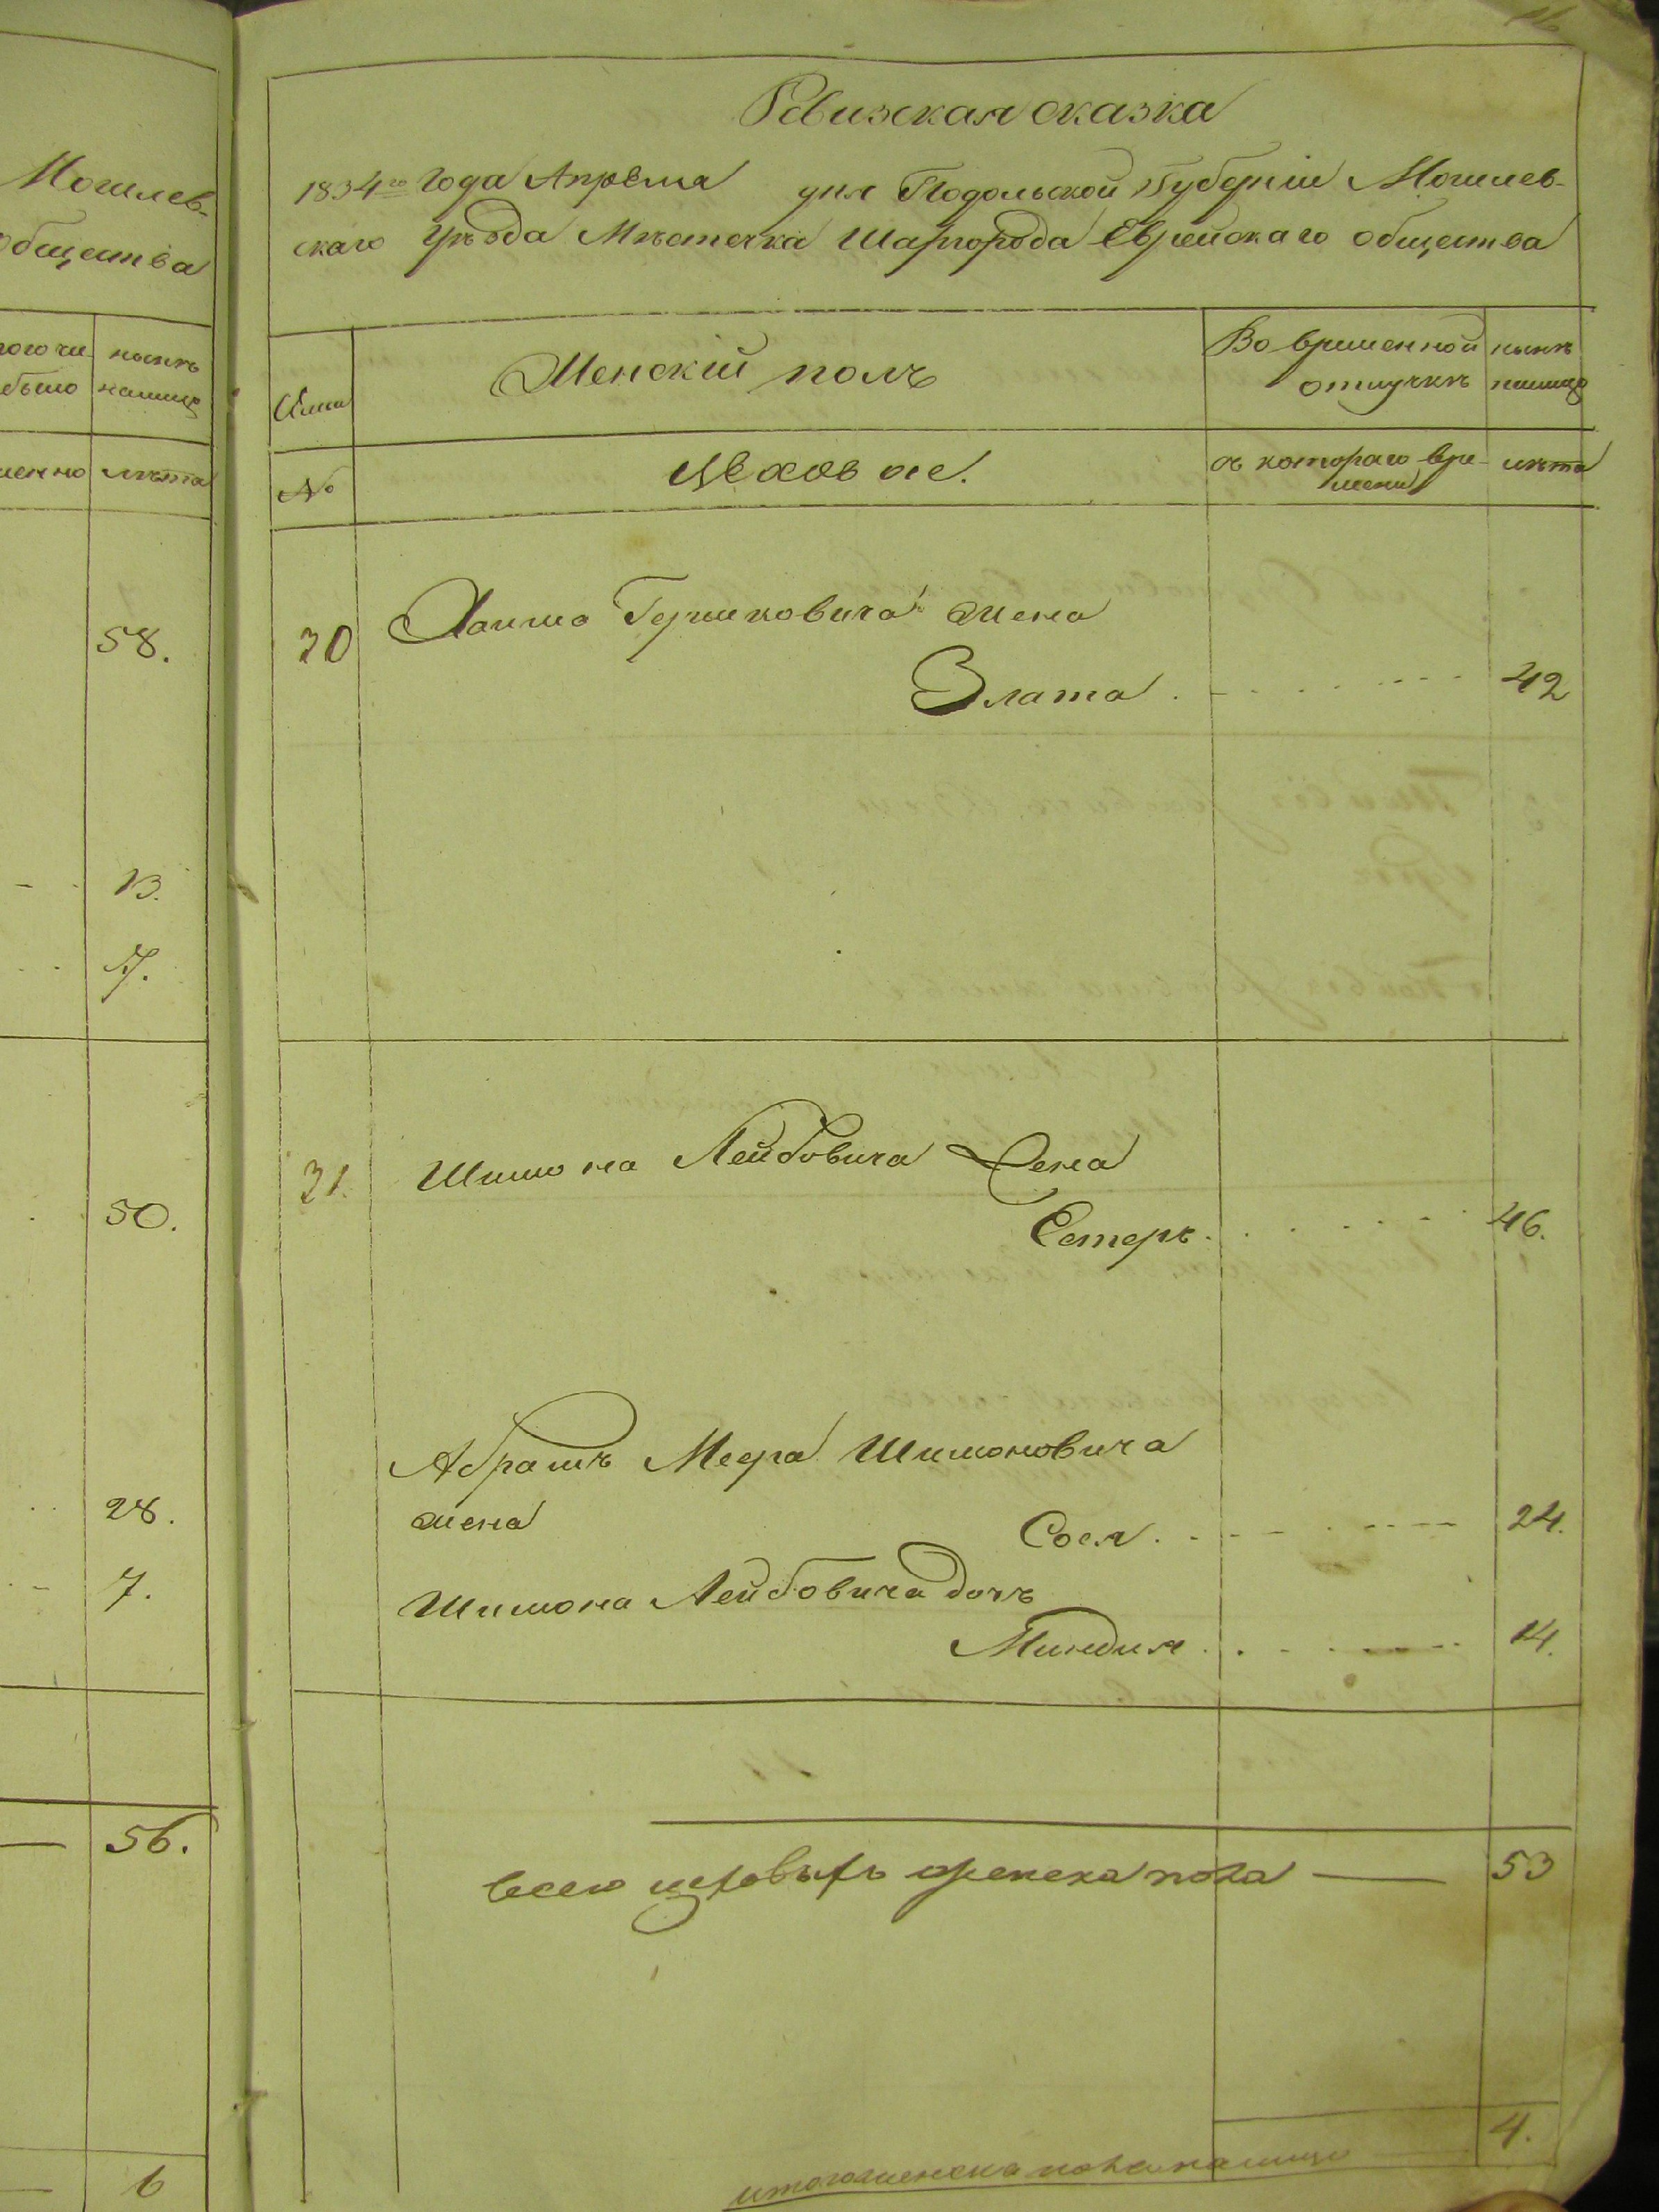 Могилев-
общества
ныне
налицо
было
лета
58.
13.
7.
50.
28.
7.
56.
6
16
Ревизская сказка
1834го года Апреля дня Подольской Губернiи Могилев-
скаго уѣзда Мѣстечка Шаргорода Еврейскаго общества
Женскiй полъ
Во временной
отлучкѣ
нынѣ
налицо
№
Цеховые.
съ котораго вре-
мени
лѣта
30
Хаима Гершковича жена
Злата 42
31.
Шимона Лейбовича жена
Естеръ. 46.
Абрамъ Меера Шимоновича
жена Сося. 24.
Шимона Лейбовича дочь
Миндля 14.
Всего цеховыхъ женска пола — 53
итого женска пола налицо 4.